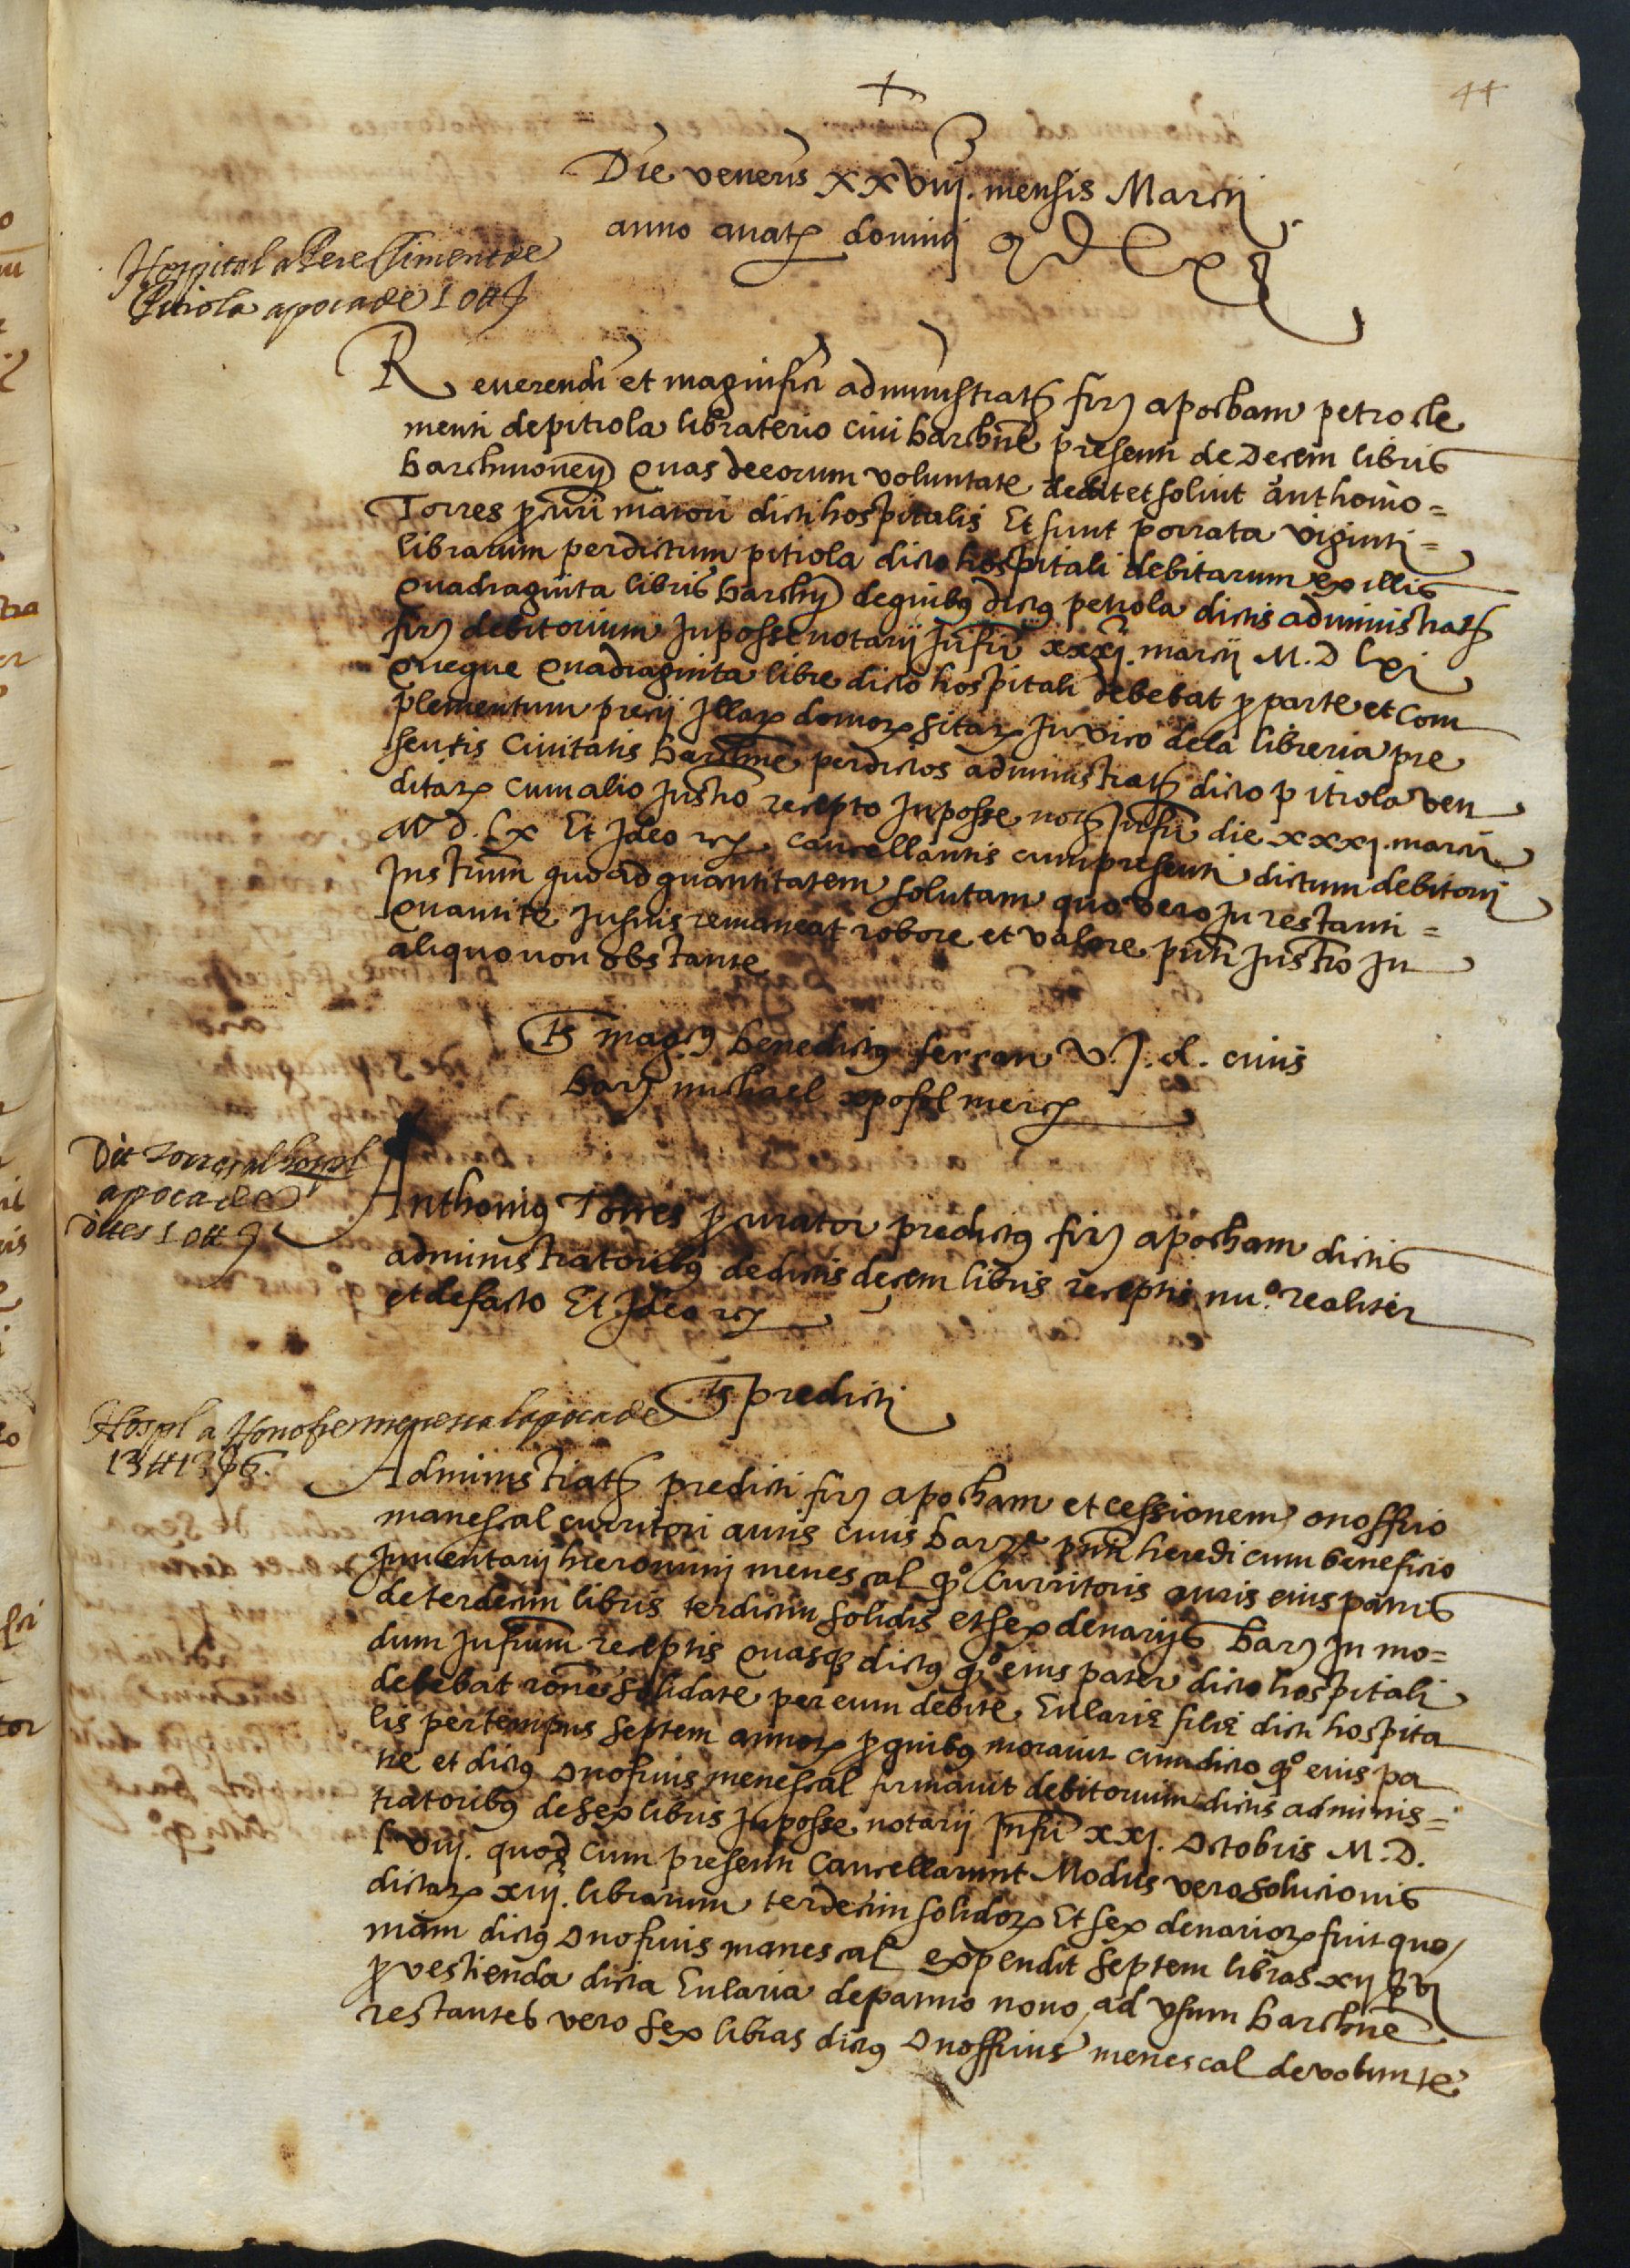 44
Die veneris xxviij. mensis Marcij
anno a nat⁊ domini M D Lxj
Hospital a Pere Climent de
Pitiola apoca de 10 ₶
Reuerendi et magnifici administrat⁊ fir⁊ apocham petro cle
menti de pitiola libraterio ciui barchn̄e presenti de Decem libris
barchinoneñ quas de eorum voluntate dedit et soluit anthonio =
Torres ꝓcurī maiori dicti hospitalis Et sunt porrata viginti =
librarum per dictum pitiola dicto hospitali debitarum ex illis
quadraginta libris barchn̄ de quibꝰ dictꝰ petiola dictis administrat⁊
fir⁊ debitorium In posse notarij Infrī xxxj. marcij M. D lxj
queque quadraginta libre dicto hospitali debebat ꝓ parte et com
plementum precij Illaꝝ domoꝝ sitaꝝ In vico de la libreria pre
sentis Ciuitatis barchn̄e per dictos administrat⁊ dicto pitiola ven
ditaꝝ cum alio Instr̄o recepto In posse not⁊ Infrī die xxxj. marcij
M d. Lx Et Ideo r⁊ cancellantis cum presenti dictum debitorij
Instrum̄ quo ad quantitatem solutam quo vero In restanti =
quantite In suis remaneat robore et valore pn̄ti Instr̄o In
aliquo non obstante
Ts̄ magcꝰ benedictꝰ ferran V. J. d. ciuis
bar⁊ michael xpofol merc⁊
Dit Torres al hospl
apoca de
dites 10 ₶
Anthoniꝰ Torres ꝓcurator predictꝰ fir⁊ apocham dictis
administratoribꝰ de dictis decem libris receptis nu⁰. realiter
et de facto Et Ideo r⁊
Ts̄ predicti
Hospl a Honofre menescal apoca de
13 ₶ 13 ß 6.
Administrat⁊ predicti fir⁊ apocham et cessionem onoffrio
manescal curritori auris ciuis bar⁊ pn̄ti heredi cum beneficio
Inuentarij hieronimi menescal q⁰ curritoris auris eius patris
de terdecim libris terdicim solidis et sex denarijs bar⁊ In mo=
dum Infrum̄ receptis quasqꝫ dictꝰ q⁰ eius pater dicto hospitali
debebat rōne solidate per eum debite Eularię filię dicti hospita
lis per tempus septem annoꝝ ꝓ quibꝰ morauit cum dicto q⁰ eius pa
tre et dictꝰ onofrius menescal firmauit debitorium dictis adminis=
tratoribꝰ de sex libris In posse notarij Infrī xxj. octobris M. D.
l viij. quod cum presenti Cancellarunt Modus vero solucionis
dictaꝝ xiij. librarum terdecim solidoꝝ Et sex denarioꝝ fuit quo/
niam dictꝰ onofrius manescal expendit septem libras xij ß vj
ꝓ vestienda dicta Eularia de panno nouo ad vsum barchn̄e
restantes vero sex libras dictꝰ onoffrius menescal de volunte